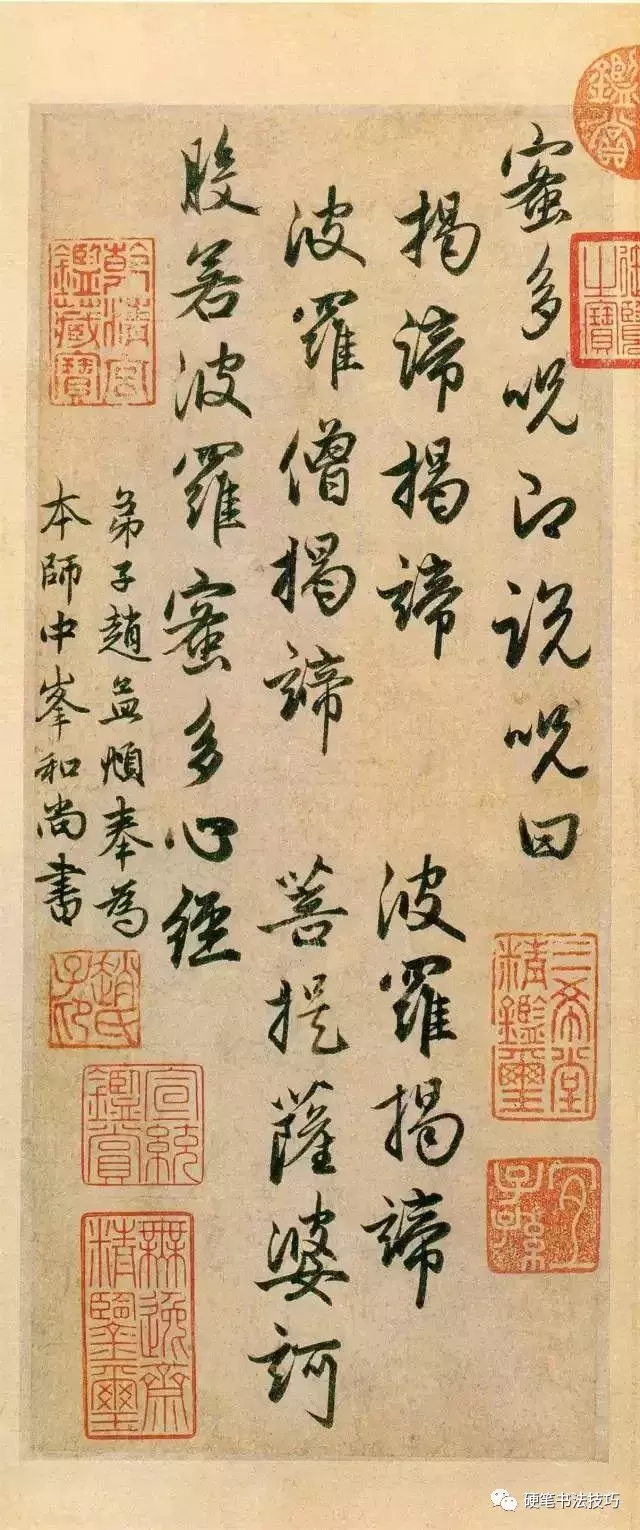 蜜多呪即說呪曰
揭諦揭諦 波羅揭諦
波羅僧揭諦 菩提薩婆訶
般若波羅蜜多心經
弟子趙孟頫奉為
本師中峯和尚書
鑑賞
御覽之寶
三希堂精鑑璽
宜子孫
乾清宮鑑藏寶
趙氏子昂
宣統鑑賞
無逸齋精鑒璽
硬笔书法技巧